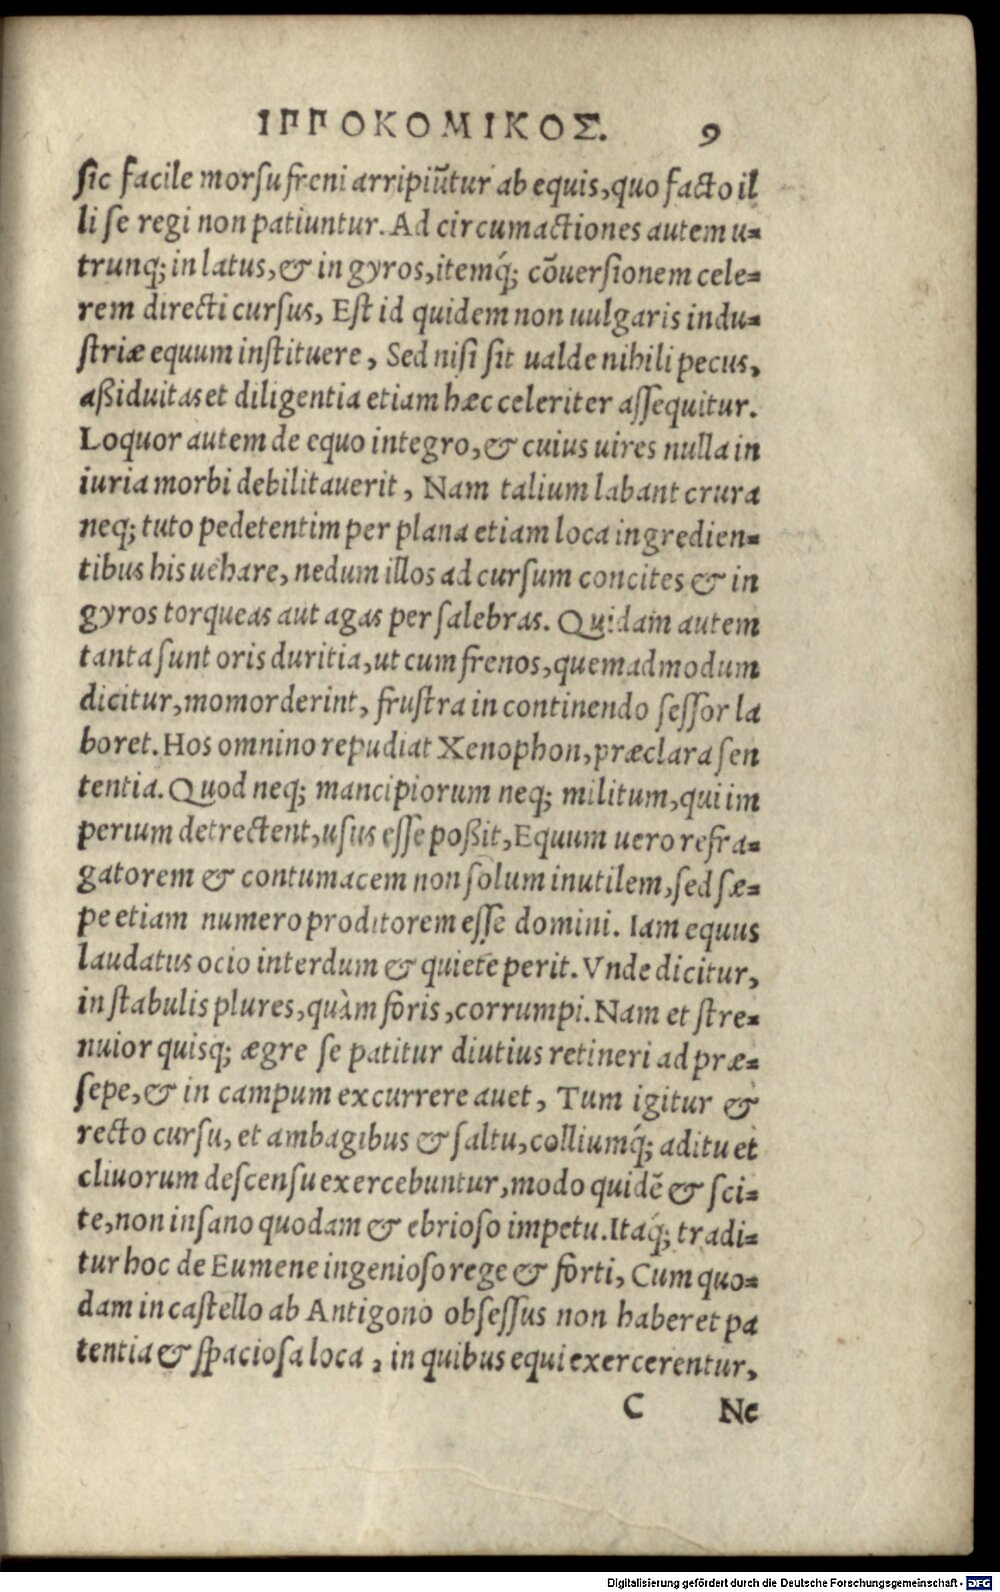 ΙΠΠΟΚΟΜΙΚΟΣ. 9
sic facile morsu freni arripiũtur ab equis, quo facto il
li se regi non patiuntur. Ad circumactiones autem u-
trunq; in latus, & in gyros, itemq́; cõuersionem cele-
rem directi cursus, Est id quidem non uulgaris indu-
striæ equum instituere, Sed nisi sit ualde nihili pecus,
aßiduitas et diligentia etiam hæc celeriter assequitur.
Loquor autem de equo integro, & cuius uires nulla in
iuria morbi debilitauerit, Nam talium labant crura
neq; tuto pedetentim per plana etiam loca ingredien-
tibus his uehare, nedum illos ad cursum concites & in
gyros torqueas aut agas per salebras. Quidam autem
tanta sunt oris duritia, ut cum frenos, quemadmodum
dicitur, momorderint, frustra in continendo sessor la
boret. Hos omnino repudiat Xenophon, præclara sen
tentia. Quod neq; mancipiorum neq; militum, qui im
perium detrectent, usus esse poßit, Equum uero refra-
gatorem & contumacem non solum inutilem, sed sæ-
pe etiam numero proditorem esse domini. Iam equus
laudatus ocio interdum & quiete perit. Vnde dicitur,
in stabulis plures, quàm foris, corrumpi. Nam et stre-
nuior quisq; ægre se patitur diutius retineri ad præ-
sepe, & in campum excurrere auet, Tum igitur &
recto cursu, et ambagibus & saltu, colliumq́; aditu et
cliuorum descensu exercebuntur, modo quidẽ & sci-
te, non insano quodam & ebrioso impetu. Itaq́; tradi-
tur hoc de Eumene ingenioso rege & forti, Cum quo-
dam in castello ab Antigono obsessus non haberet pa
tentia & spaciosa loca, in quibus equi exercerentur,
C Ne
Digitalisierung gefördert durch die Deutsche Forschungsgemeinschaft - DFG